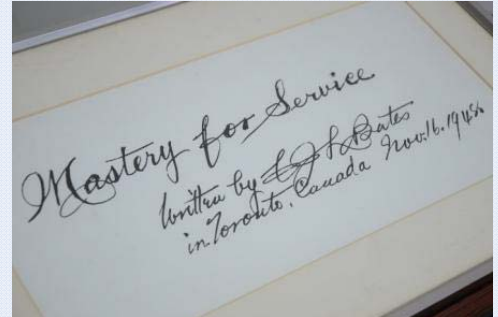 Mastery for Service
Written by C J L Bates
in Toronto, Canada Nov. 16. 1948.